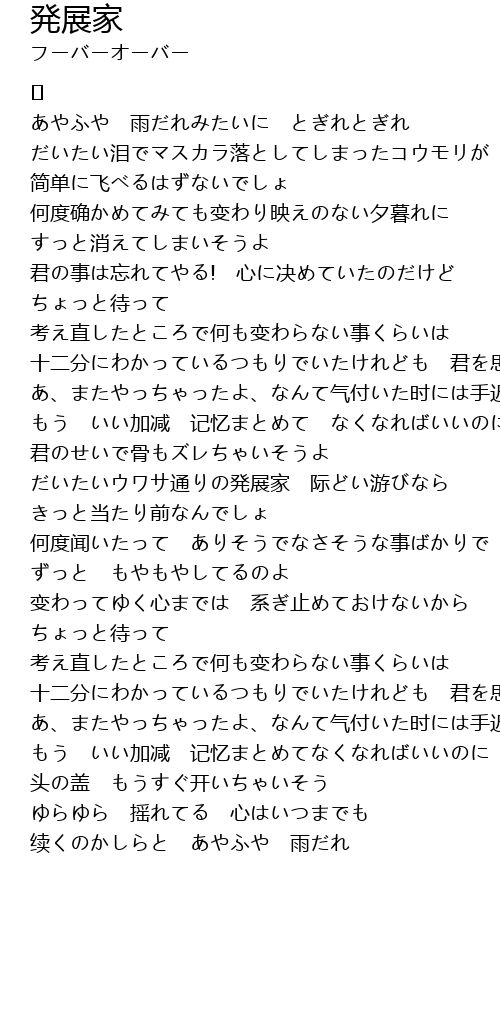 発展家
フーバーオーバー
あやふや　雨だれみたいに　とぎれとぎれ
だいたい泪でマスカラ落としてしまったコウモリが
简单に飞べるはずないでしょ
何度确かめてみても変わり映えのない夕暮れに
すっと消えてしまいそうよ
君の事は忘れてやる!　心に决めていたのだけど
ちょっと待って
考え直したところで何も変わらない事くらいは
十二分にわかっているつもりでいたけれども　君を思
あ、またやっちゃったよ、なんて气付いた时には手近
もう　いい加減　记忆まとめて　なくなればいいのに
君のせいで骨もズレちゃいそうよ
だいたいウワサ通りの発展家　际どい游びなら
きっと当たり前なんでしょ
何度闻いたって　ありそうでなさそうな事ばかりで
ずっと　もやもやしてるのよ
变わってゆく心までは　系ぎ止めておけないから
ちょっと待って
考え直したところで何も変わらない事くらいは
十二分にわかっているつもりでいたけれども　君を思
あ、またやっちゃったよ、なんて气付いた时には手近
もう　いい加減　记忆まとめてなくなればいいのに
头の盖　もうすぐ开いちゃいそう
ゆらゆら　揺れてる　心はいつまでも
续くのかしらと　あやふや　雨だれ